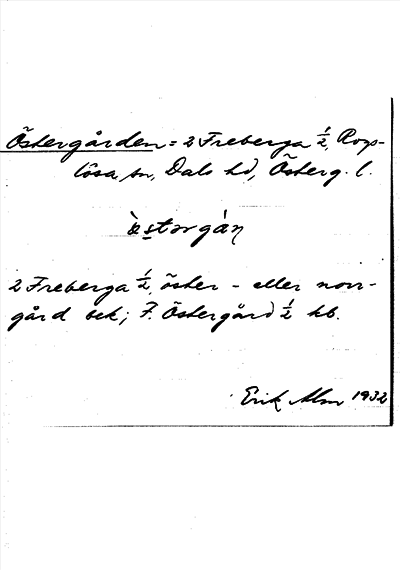 Östergården = 2 Freberga 1/2, Rogs-
lösa sn, Dals hd, Österg. l.
2 Freberga 1/2, öster- eller norr-
gård bek; F. Östergård 1/2 hb.
Erik Alm 1932